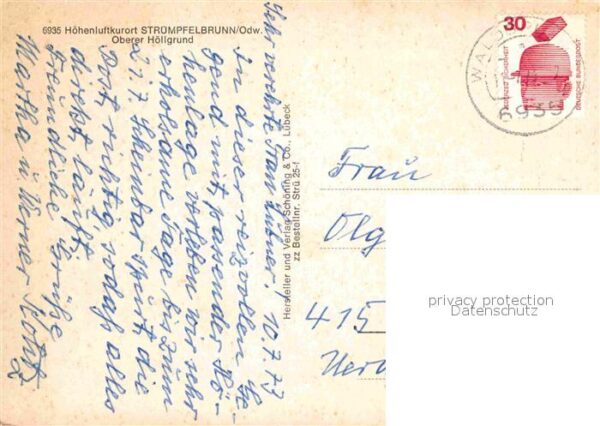 6935 Höhenluftkurort STRÜMPFELBRUNN/Odw.
Oberer Höllgrund
Sehr verehrte Frau Hübner, 10.7.73
In dieser reizvollen Ge-
gend mit passender Hö-
henlage verleben wir sehr
erholsame Tage bis zum
27.7. Scheinbar spurt die
Post richtig, sodaß alles
direkt läuft.
Freundliche Grüße
Martha u. Werner
Hersteller und Verlag Schöning & Co., Lübeck
zz Bestellnr. Strü 25-f
30
DEUTSCHE BUNDESPOST
WALD
6935
Frau
Olg
415
privacy protection
Datenschutz